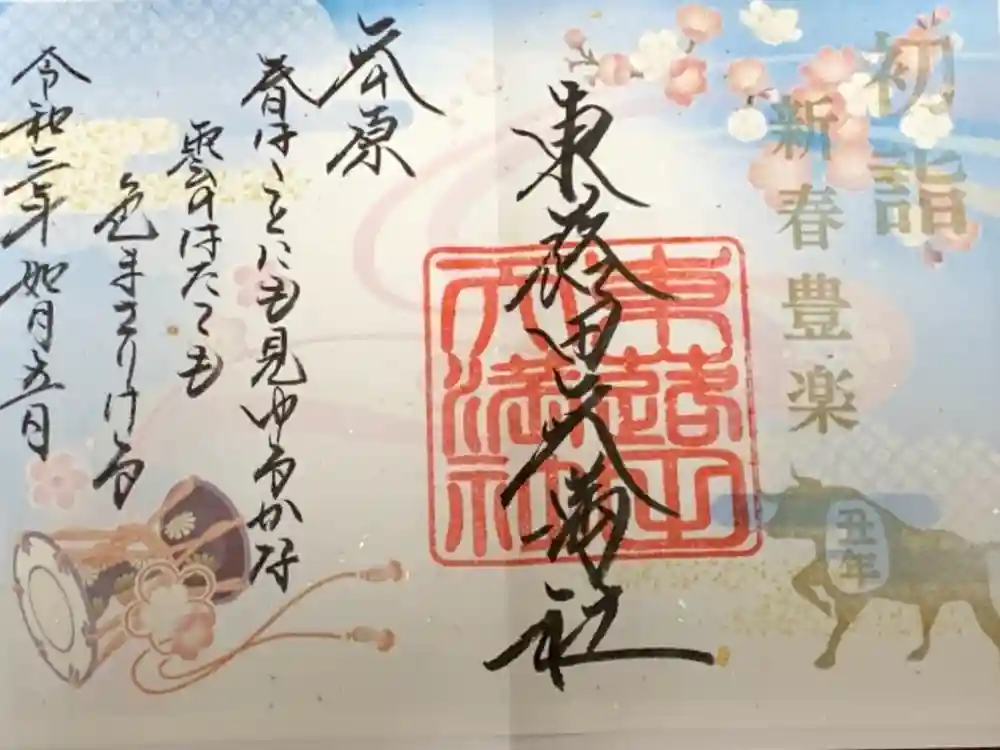 初詣
新春豊楽
丑年
東蕗田天満社
東蕗田天満社
原
春はことにも見ゆるかな
雲のはたても
色まさりける
令和三年如月五日